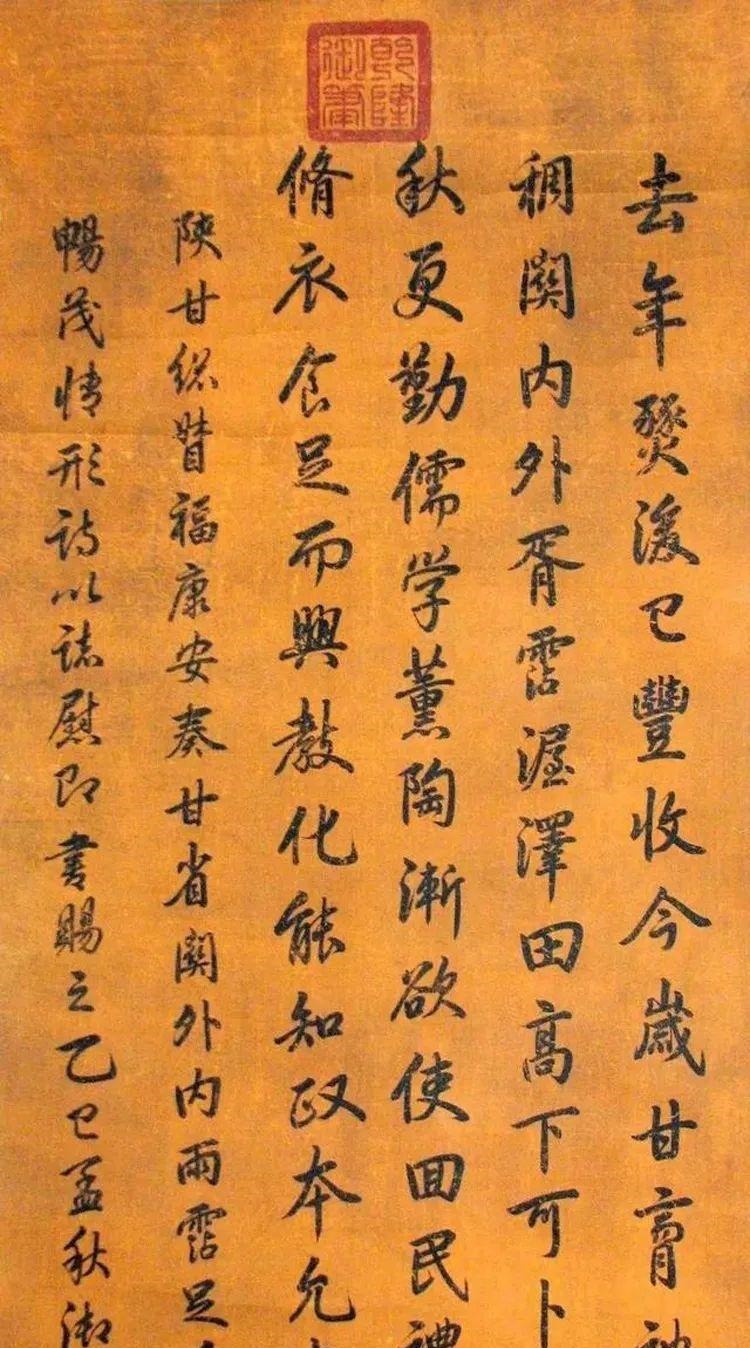 乾隆御筆
去年燹後已豐收今歲甘膏
稠闗内外胥霑渥澤田高下可卜
秋更勤儒学薰陶漸欲使囬民禮
脩衣食足而興教化能知政本允
陝甘緫督福康安奏甘省闗外内雨霑足
暢茂情形詩以誌慰即書賜之乙巳孟秋御